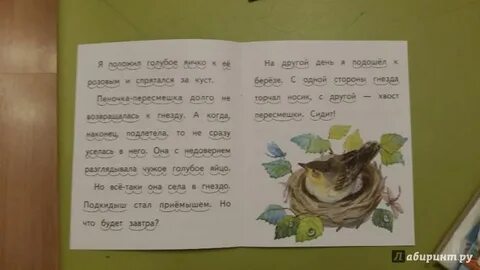 Я положил голубое яичко к её
розовым и спрятался за куст.
Пеночка-пересмешка долго не
возвращалась к гнезду. А когда,
наконец, подлетела, то не сразу
уселась в него. Она с недоверием
разглядывала чужое голубое яйцо.
Но всё-таки она села в гнездо.
Подкидыш стал приёмышем. Но
что будет завтра?
На другой день я подошёл к
берёзе. С одной стороны гнезда
торчал носик, с другой — хвост
пересмешки. Сидит!
Лабиринт.ру